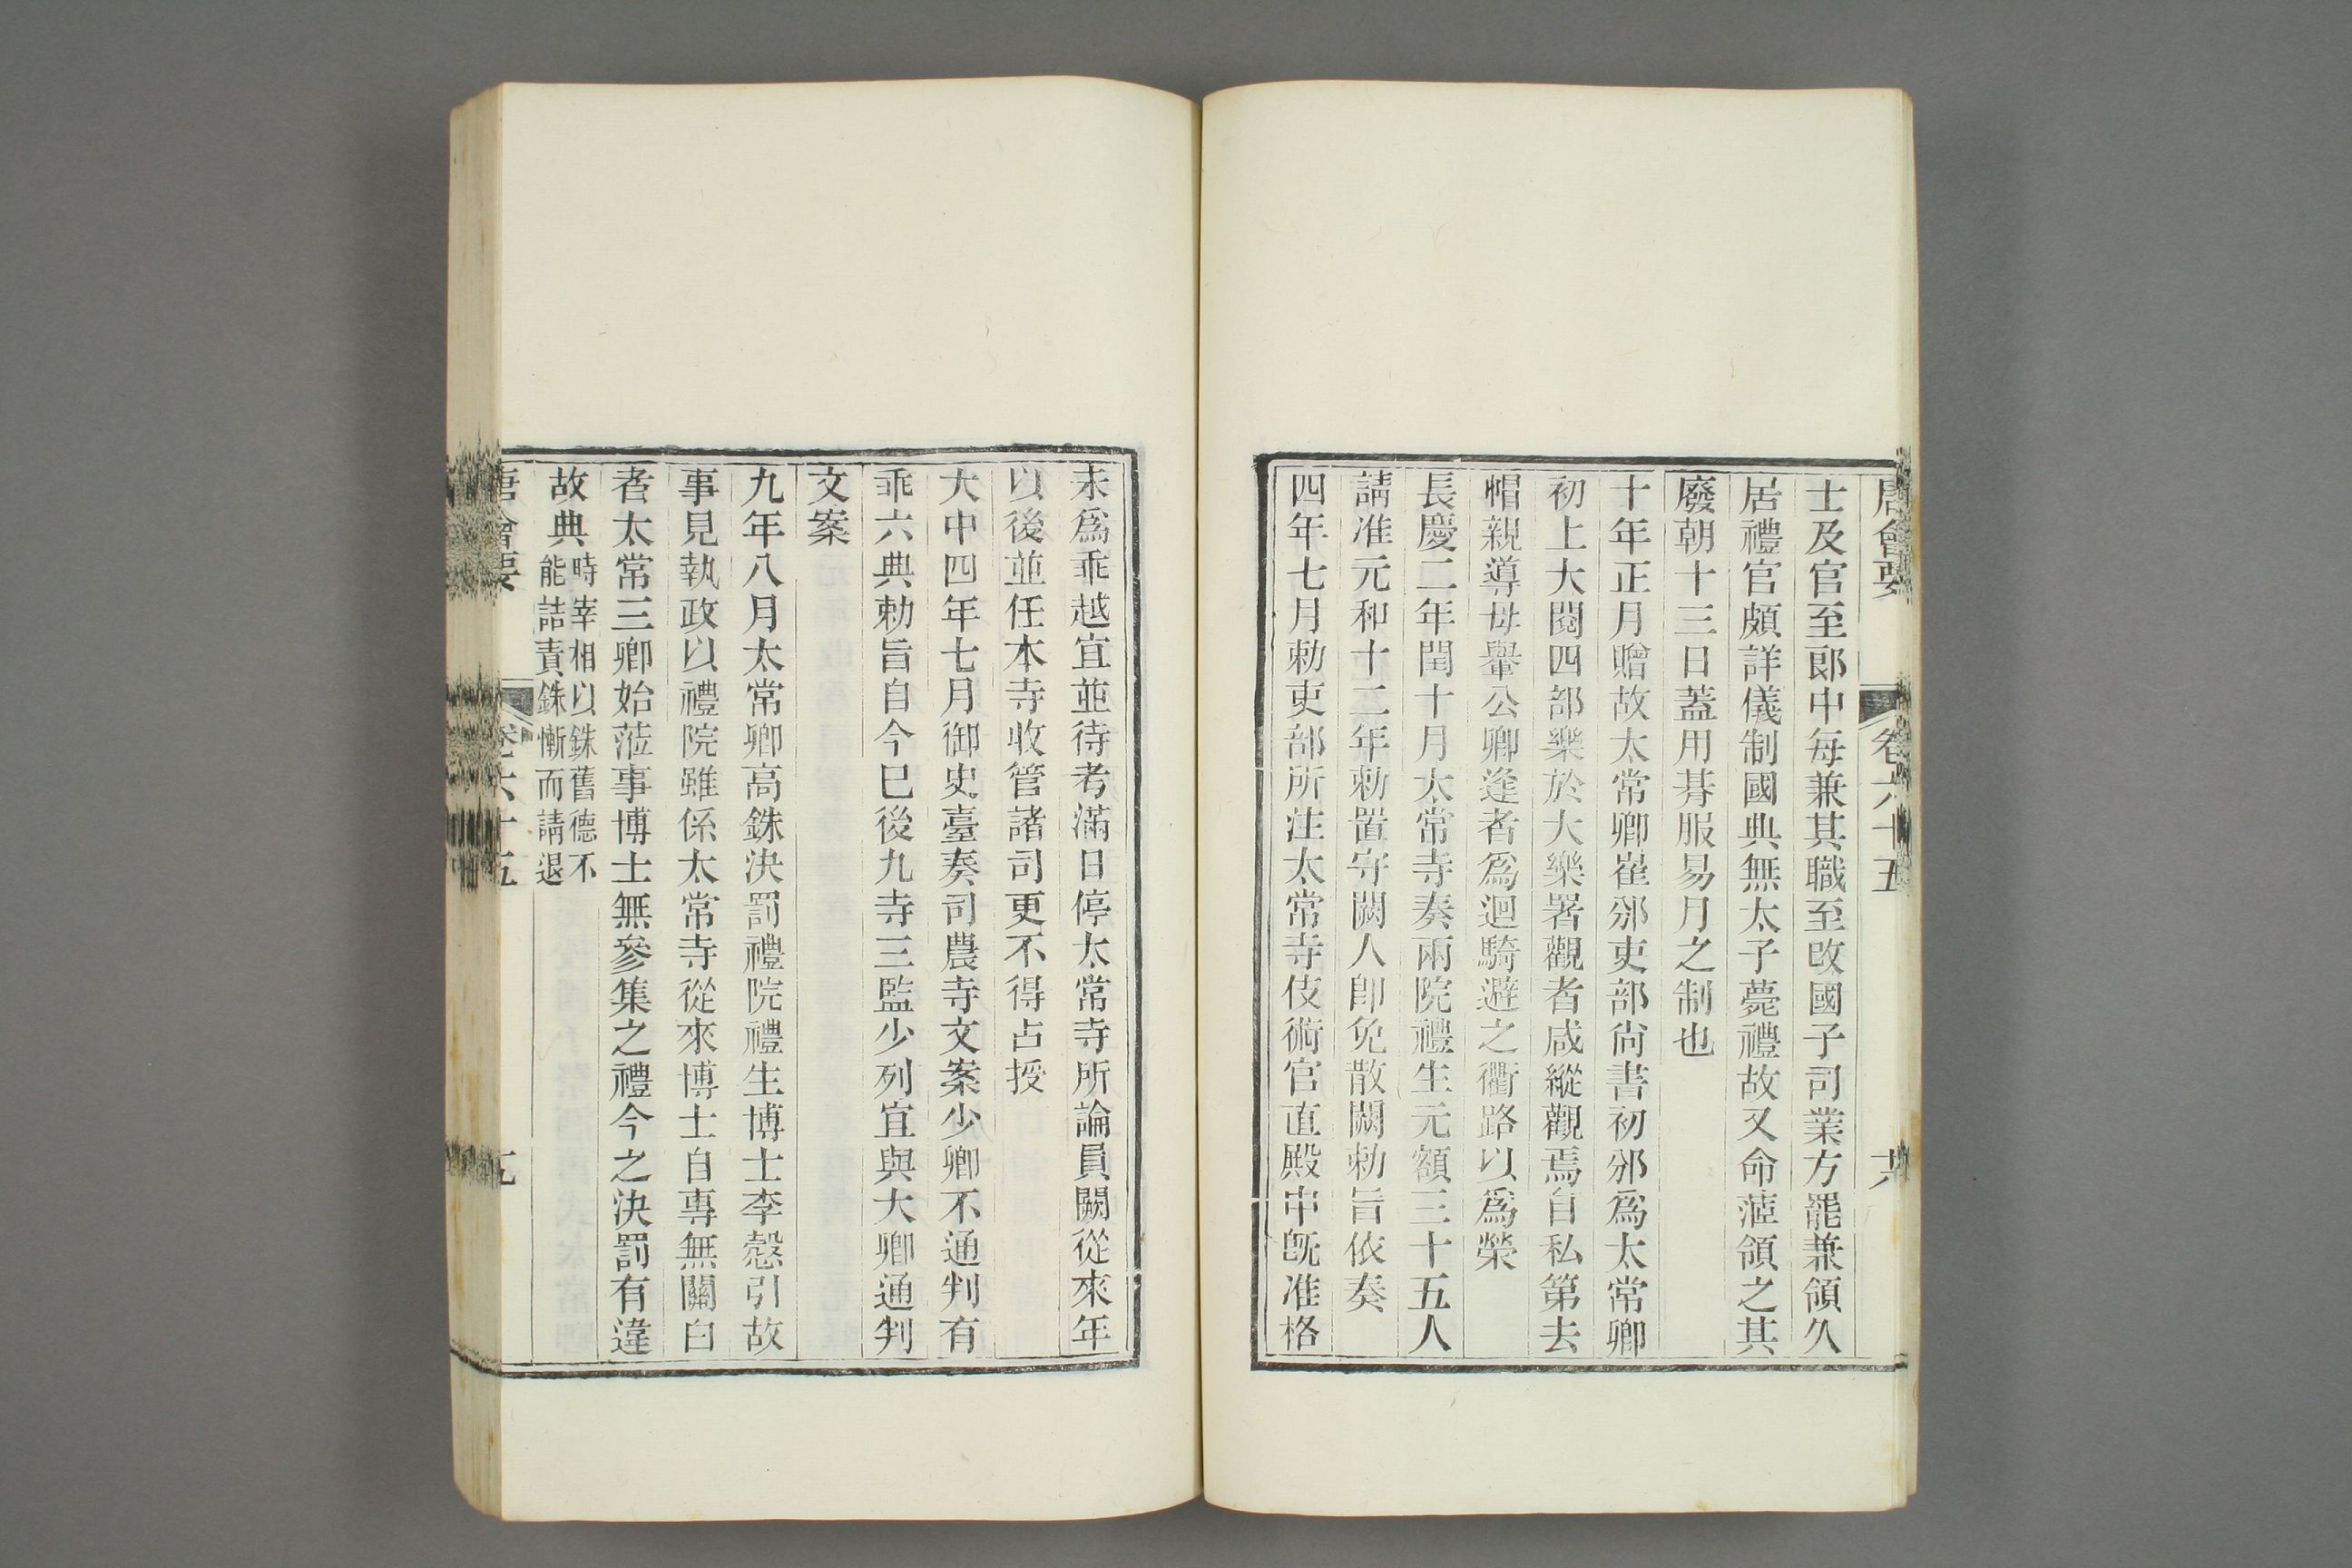 唐會要 卷六十五
士及官至郎中每兼其職至改國子司業方罷兼領久
居禮官頗詳儀制國典無太子薨禮故又命蒞領之其
廢朝十三日蓋用朞服易月之制也
十年正月贈故太常卿崔邠吏部尚書初邠爲太常卿
初上大閱四部樂於大樂署觀者咸縱觀焉自私第去
帽親導母轝公卿逢者爲迴騎避之衢路以爲榮
長慶二年閏十月太常寺奏兩院禮生元額三十五人
請准元和十二年勅置守闕人卽免散闕勅旨依奏
四年七月勅吏部所注太常寺伎術官直殿中旣准格
未爲乖越宜並待考滿日停太常寺所論員闕從來年
以後並任本寺收管諸司更不得占授
大中四年七月御史臺奏司農寺文案少卿不通判有
乖六典勅旨自今已後九寺三監少列宜與大卿通判
文案
九年八月太常卿高銖決罰禮院禮生博士李慤引故
事見執政以禮院雖係太常寺從來博士自專無關白
者太常三卿始蒞事博士無參集之禮今之決罰有違
故典時宰相以銖舊德不
能詰責銖慚而請退
唐會要 卷六十五